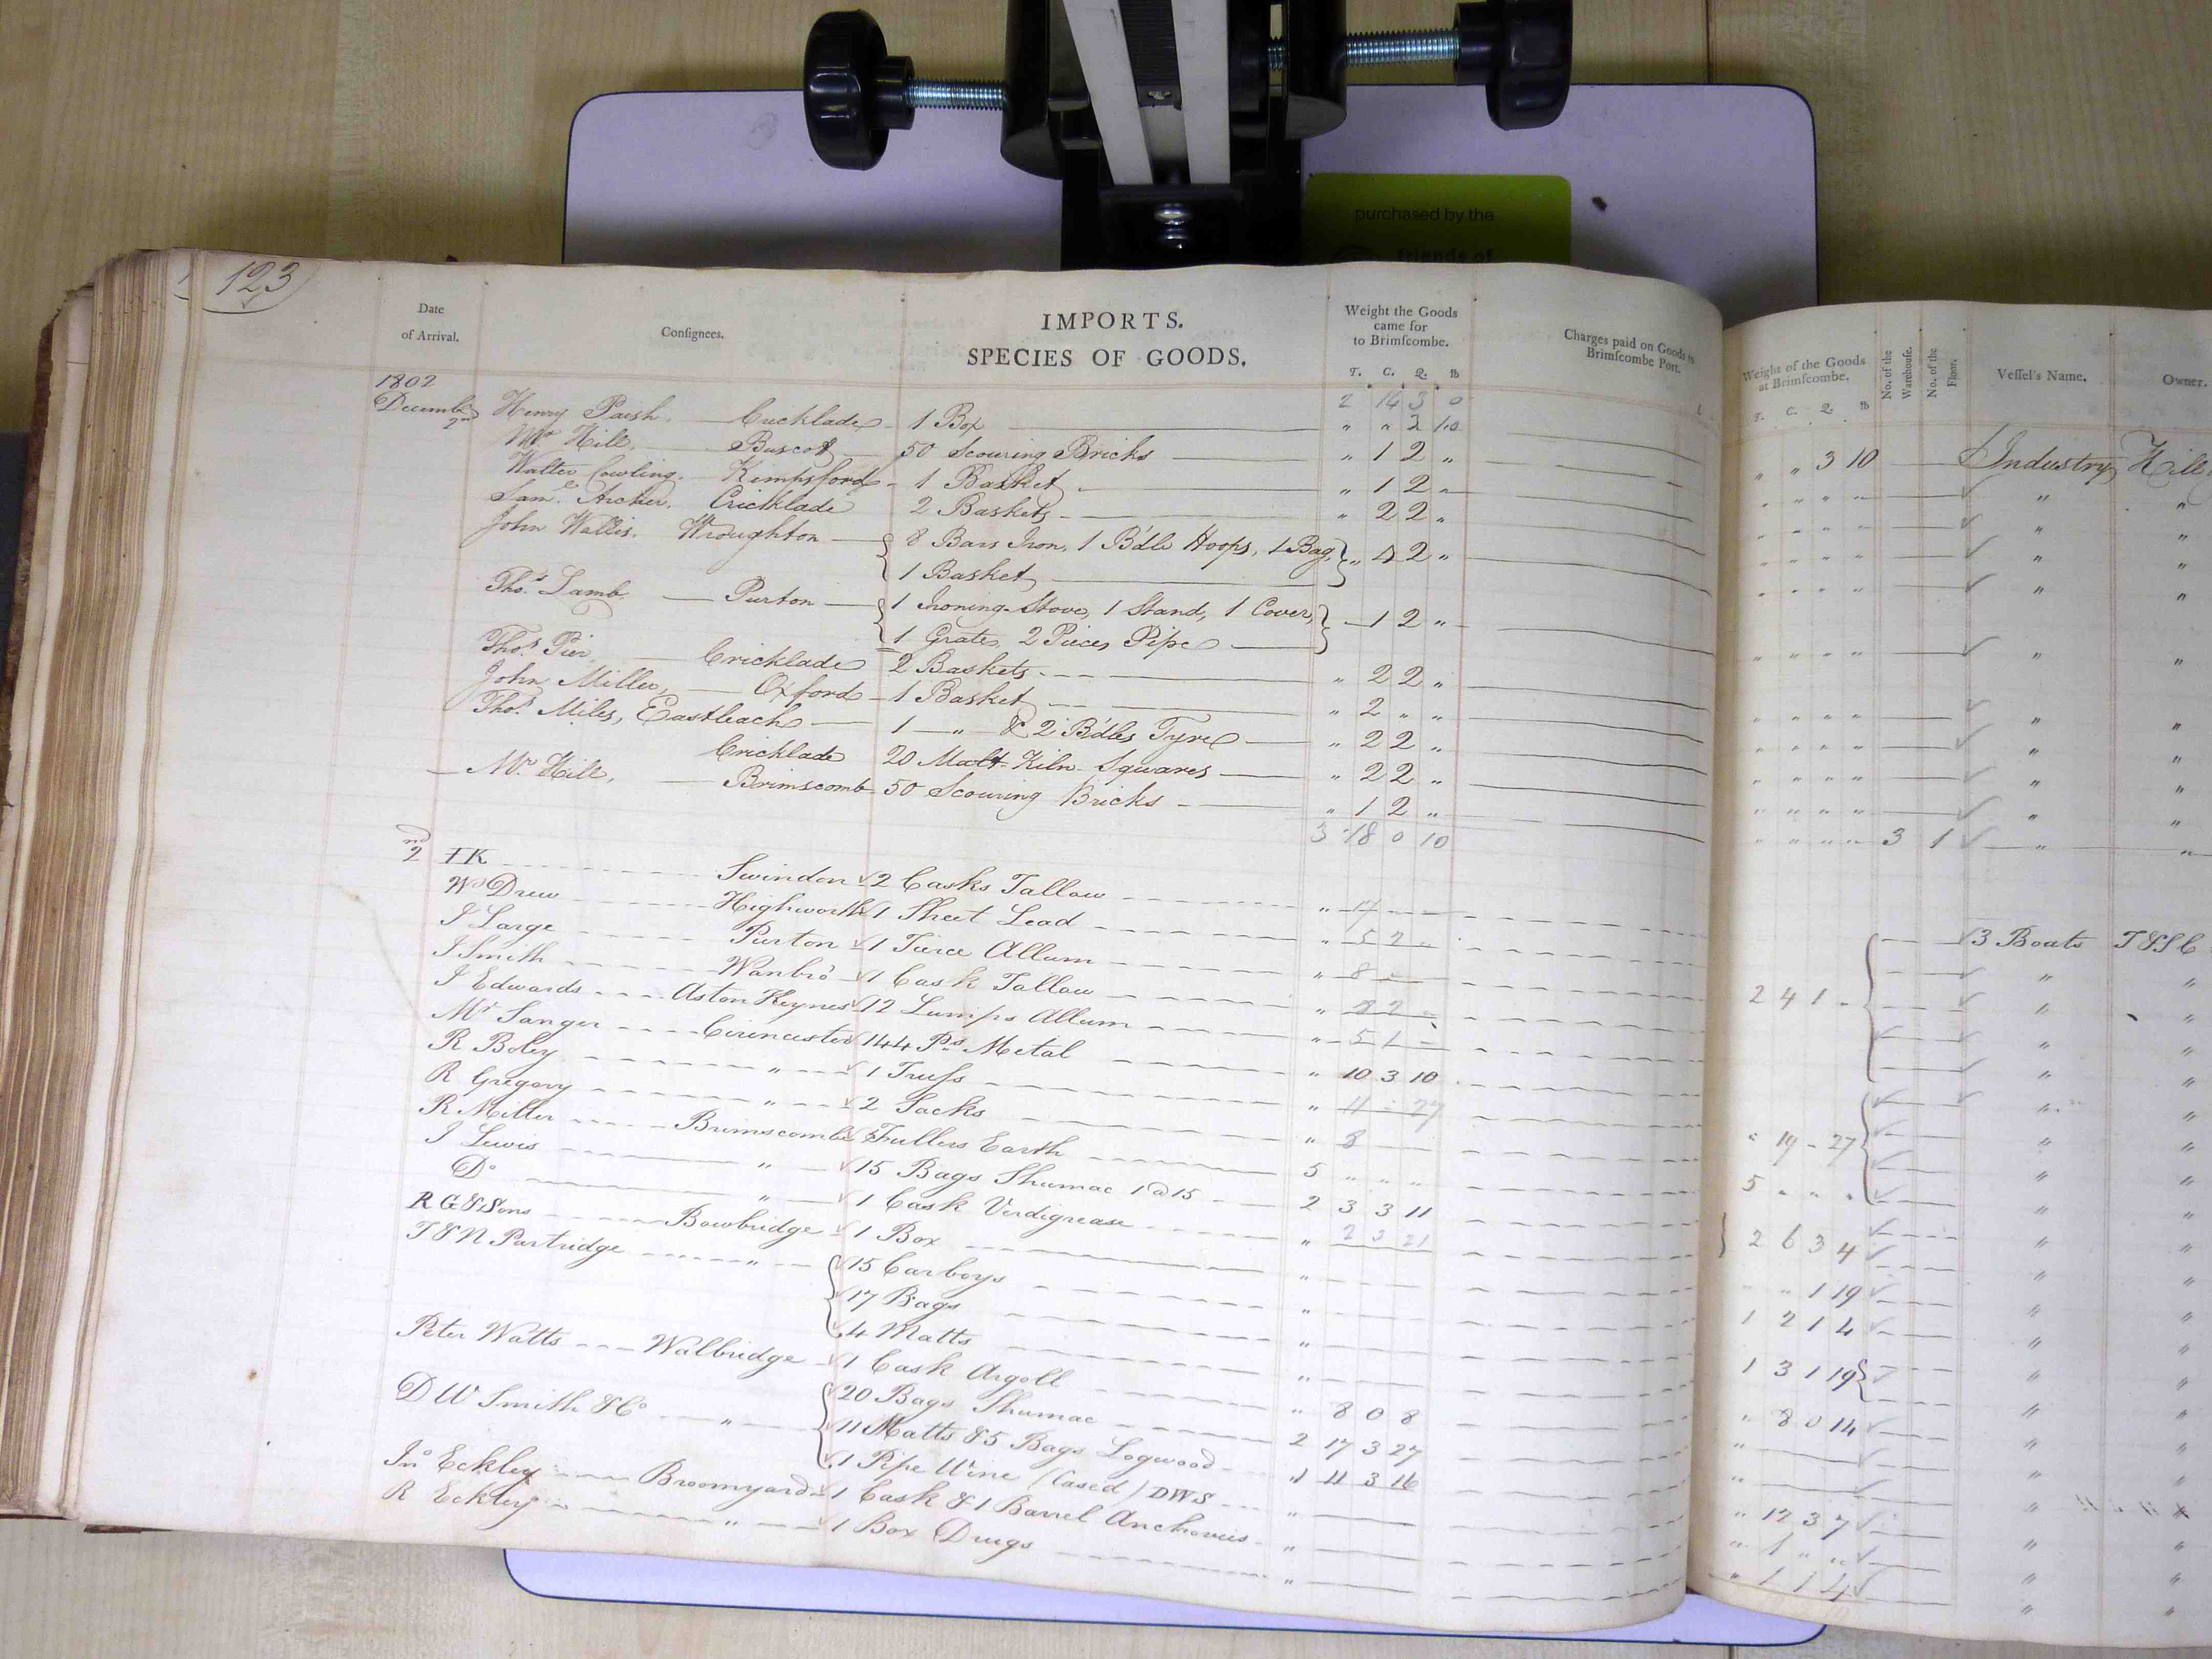 purchased by the
friends of
123
Date of Arrival. Conſignees. IMPORTS. SPECIES OF GOODS. Weight the Goods came for to Brimſcombe. Charges paid on Goods to Brimſcombe Port. Weight of the Goods at Brimſcombe. No. of the Warehouse. No. of the Floor. Veſſel's Name. Owner.
T. C. Q. lb T. C. Q. lb
1802 2 14 3 0
Decembr 2nd Henry Paish. Cricklade 1 Box " " 2 10 " " 3 10 Industry Hill
Mr Hill. Buscot 50 Scouring Bricks " 1 2 " " "
Walter Cowling. Kempsford 1 Basket " 1 2 " " "
Saml Archer. Cricklade 2 Baskets " 2 2 " " "
John Wallis. Wroughton 8 Bars Iron, 1 Bdle Hoops, 1 Bag, " 2 " " "
1 Basket
Thos Lamb. Purton 1 Ironing Stove, 1 Stand, 1 Cover, 1 2 " " "
1 Grate, 2 Pieces Pipe
Thos Pier Cricklade 2 Baskets " 2 2 " " "
John Miller, Oxford 1 Basket " 2 " " " "
Thos Miles, Eastleach 1 " & 2 Bdles Tyre " 2 2 " " "
Cricklade 20 Malt Kiln Squares " 2 2 " " "
Mr Hill, Brimscomb 50 Scouring Bricks " 1 2 " 3 1 " "
3 18 0 10
2nd IK Swindon 2 Casks Tallow " 17 3 Boats
W Drew Highworth 1 Sheet Lead " 5 2 " "
I Large Purton 1 Tierce Allum " 8 2 4 1 - " "
I Smith Wanbro 1 Cask Tallow " 8 2 " "
I Edwards Aston Keynes 12 Lumps Allum " 5 1 - " "
Mr Sanger Cirencester 144 Ps Metal " 10 3 10 "
R Boley " 1 Truſs " 11 - 27 " 19 - 27 " "
R Gregory " 2 Sacks " 8 " "
R Miller Brimscombe Fullers Earth 5 " " " 5 " " " " "
I Lewis " 15 Bags Shumac 1 @ 15 2 3 3 11 2 6 3 4 " "
Do " 1 Cask Verdigrease " 2 3 21 " "
R G & Sons Bowbridge 1 Box " " " 1 19 " "
I & N Partridge " 15 Carboys " 1 2 1 4 " "
17 Bags " 1 3 1 19 " "
4 Matts " " "
Peter Watts Walbridge 1 Cask Argoll " 8 0 8 " 8 0 14 " "
D W Smith & Co " 20 Bags Shumac 2 17 3 27 " "
11 Matts & 5 Bags Logwood 11 3 16 " "
1 Pipe Wine (Cased) DWS " " 12 3 7 " "
Jno Eckley Broomyard 1 Cask & 1 Barrel Anchovies " " 1 " " " "
R Eckley " 1 Box Drugs " " 1 1 4 " "